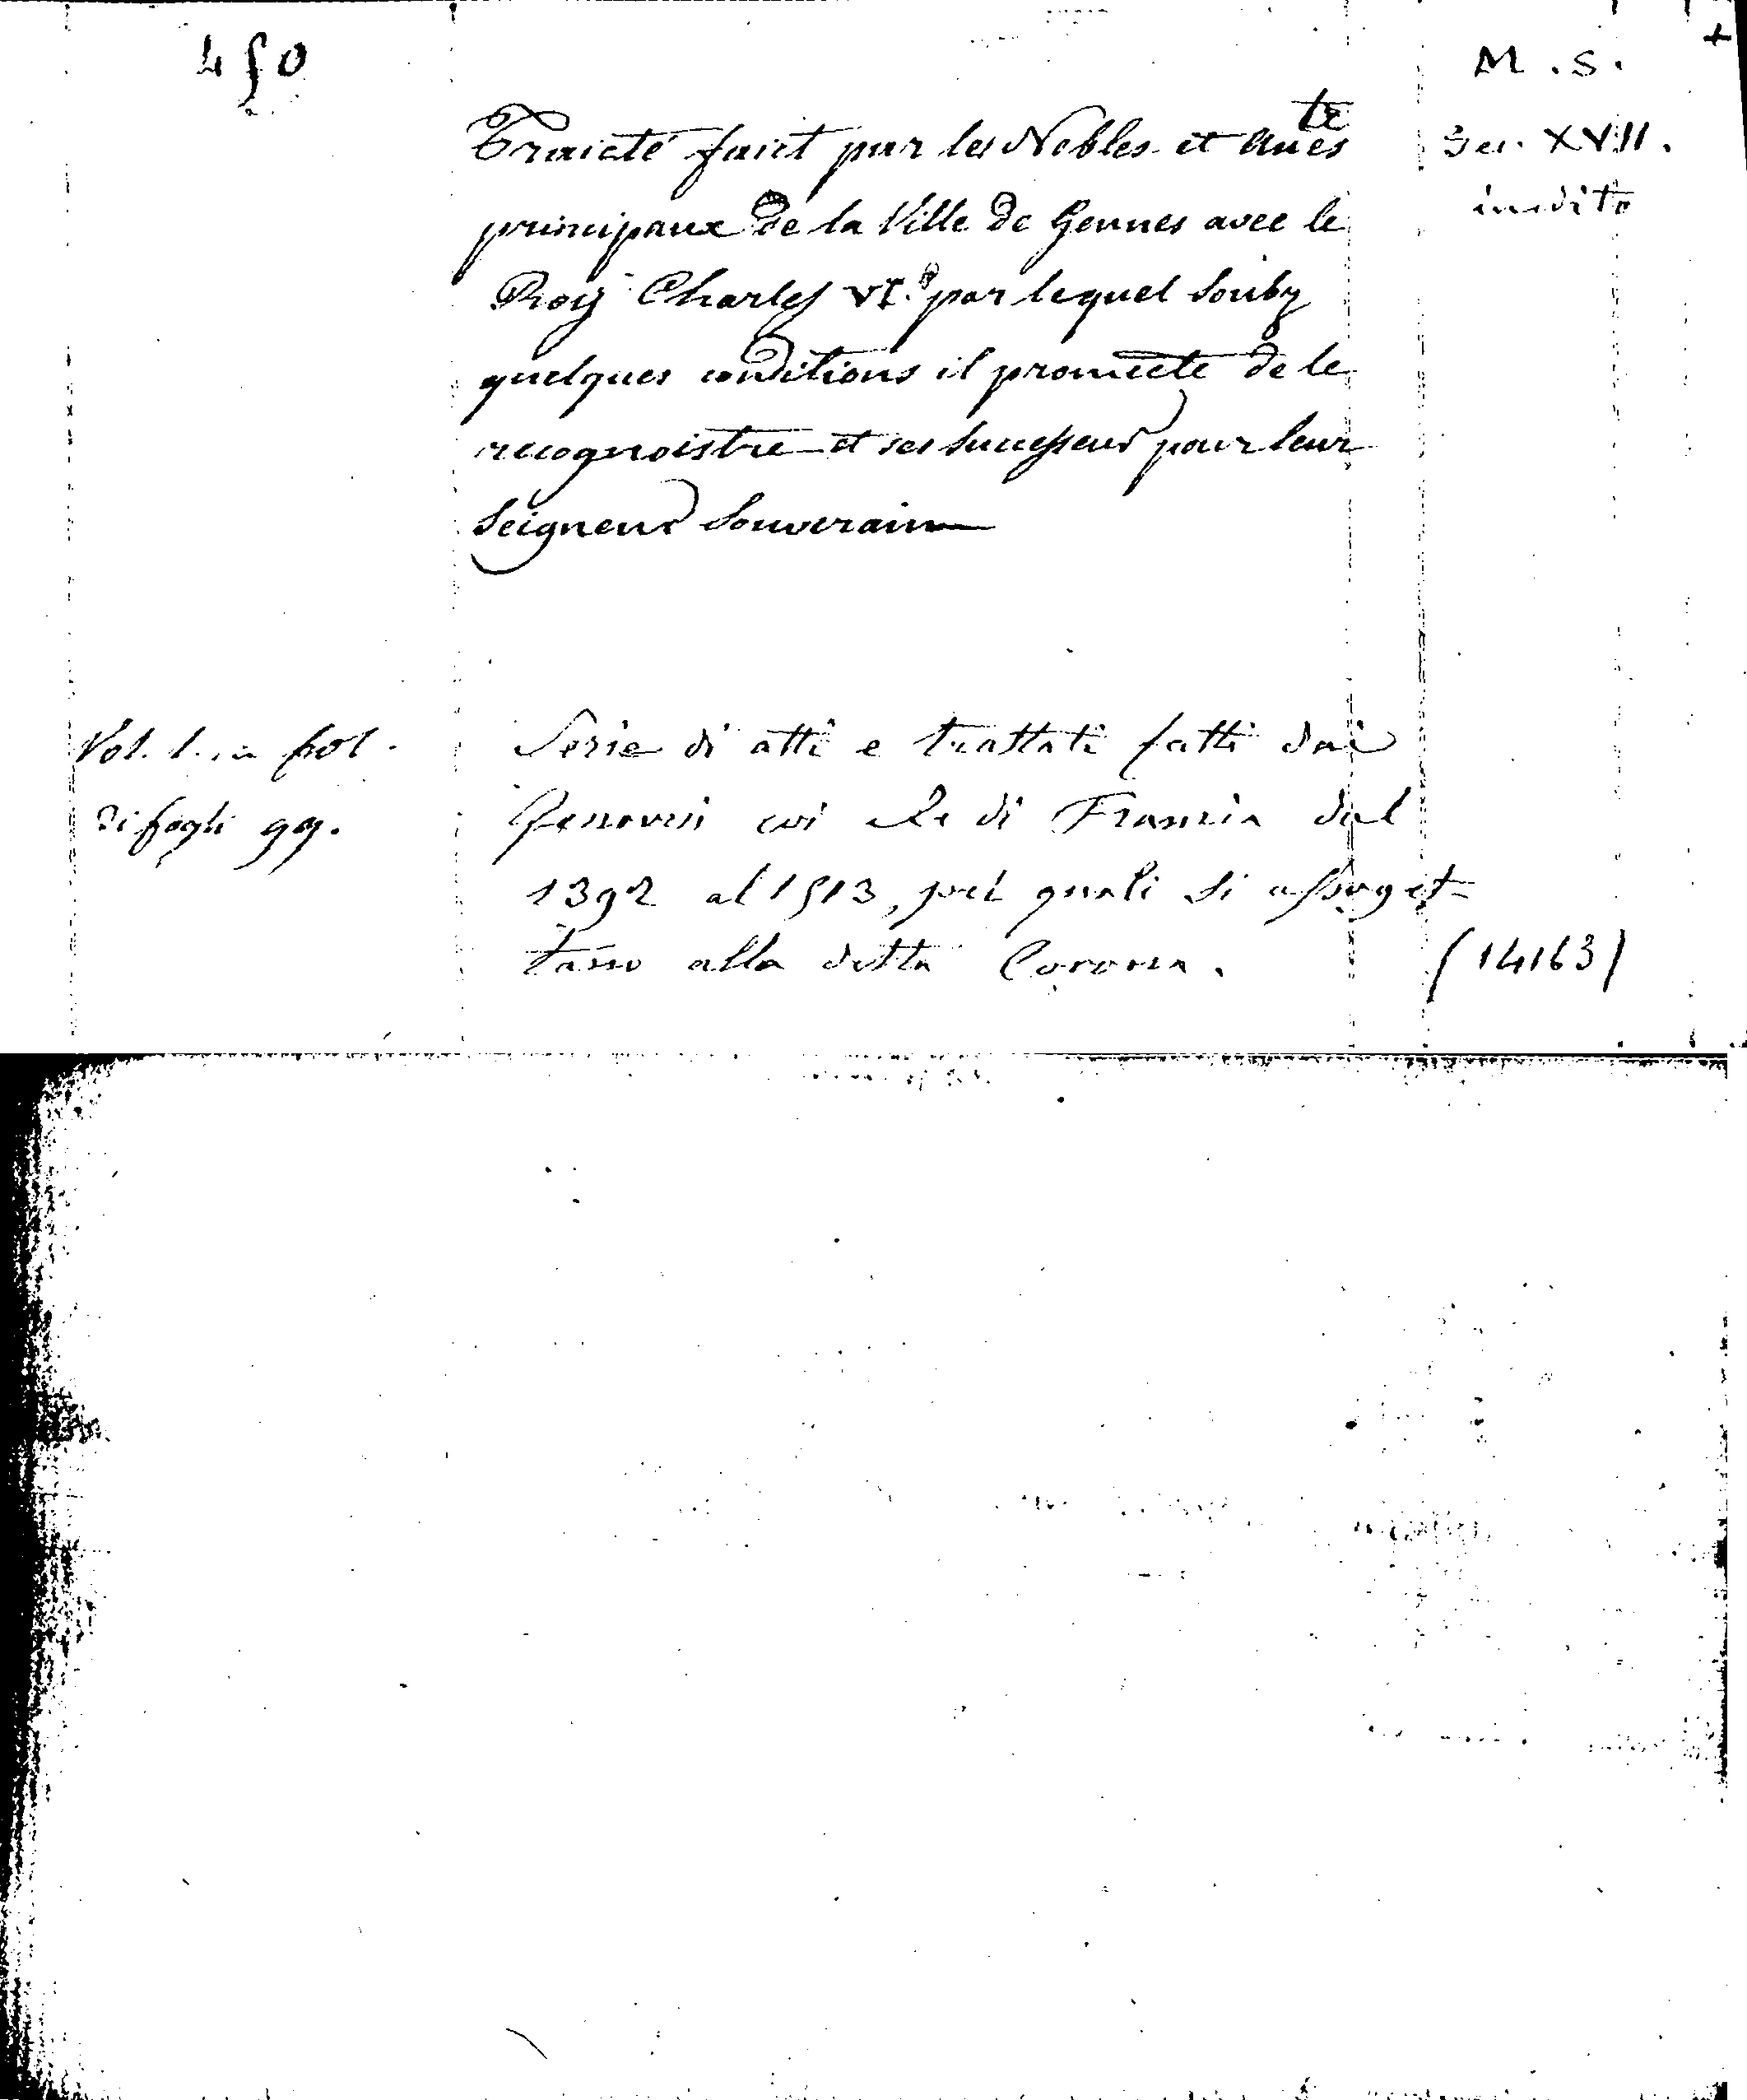 450
M. S.
+
Traicté faict par les Nobles et Au^tres
Sec. XVII.
principaux de la Ville de Gennes avec le
inedito
Roy Charles VI.e par lequel soubz
quelques conditions il promecte de le
recognoistre et ses successeurs pour leur
Seigneur Souverain
Vol. 1. in fol.
Serie di atti e trattati fatti dai
di fogli 99.
Genovesi coi Re di Francia dal
1392 al 1513, pei quali si assoget-
tano alla detta Corona.
(14163)